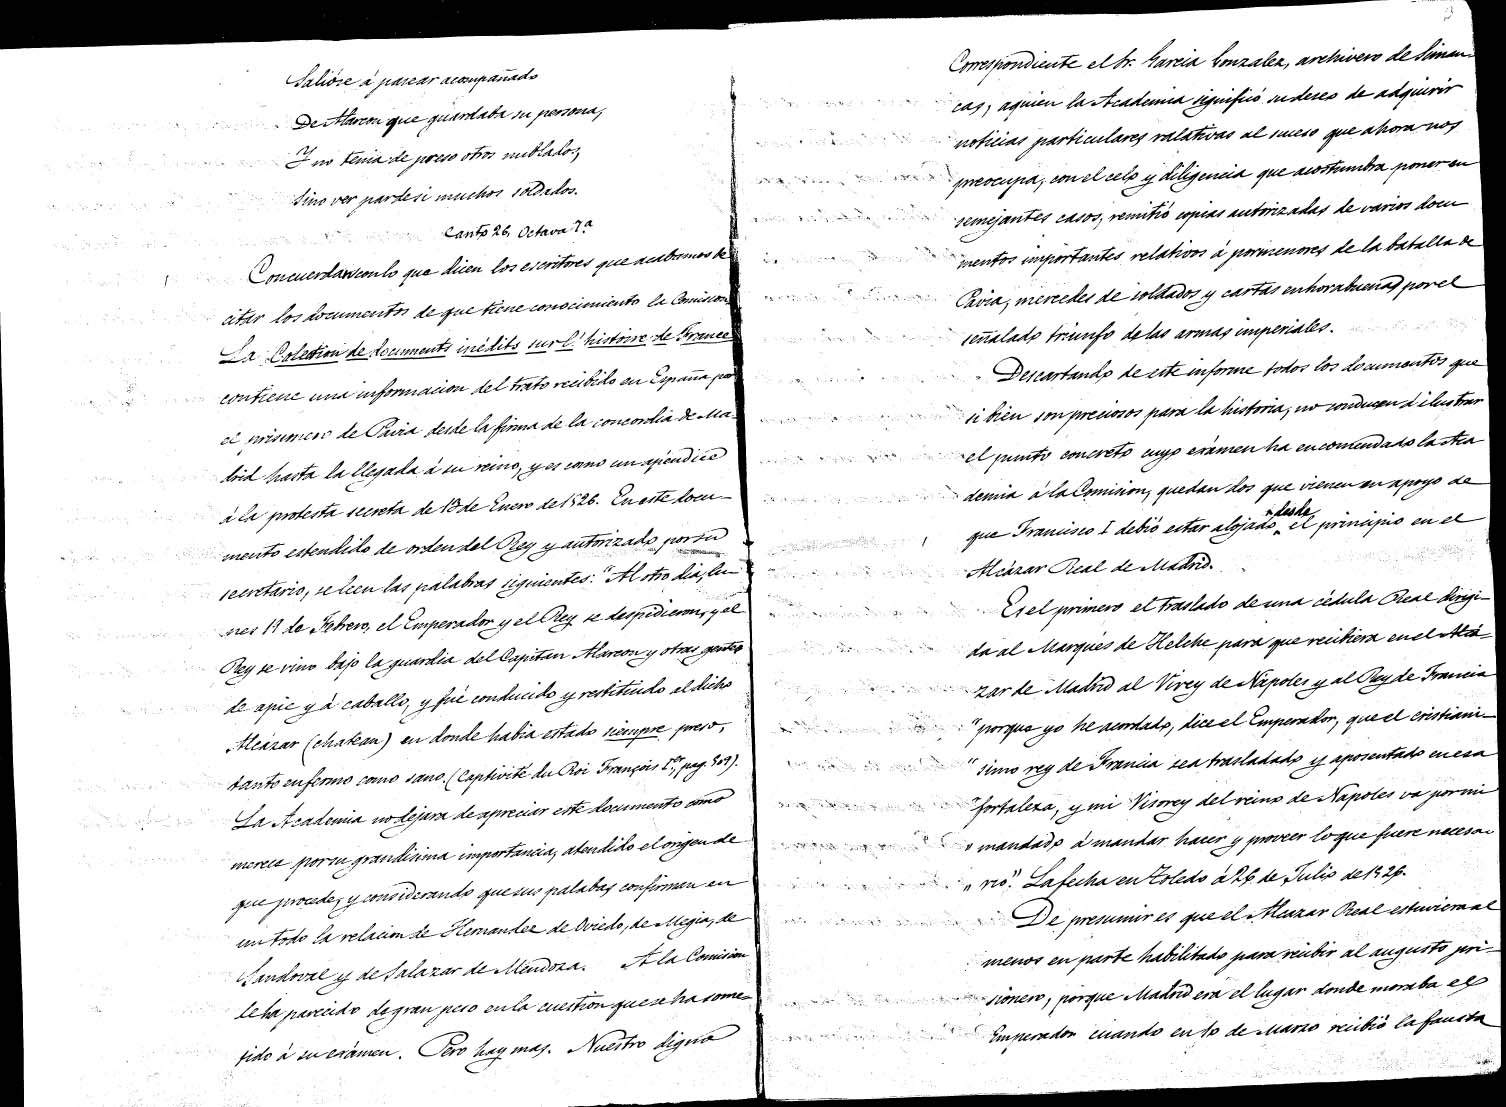 Salióse á pasear acompañado
De Alarcon que guardaba su persona,
Y no tenia de preso otros nublados,
Sino ver par de si muchos soldados.
Canto 26, Octava 7.a
Concuerdan con lo que dicen los escritores que acabamos de
citar los documentos de que tiene conocimiento la Comision.
La Colection de documents inédits sur l'histoire de France
contiene una informacion del trato recibido en España por
el prisionero de Pavia desde la firma de la concordia de Ma-
drid hasta la llegada á su reino, y es como un apéndice
á la protesta secreta de 13 de Enero de 1526. En este docu-
mento estendido de orden del Rey y autorizado por su
secretario, se leen las palabras siguientes: "Al otro dia, lu-
nes 19 de Febrero, el Emperador y el Rey se despidieron, y el
Rey se vino bajo la guardia del Capitan Alarcon y otras gentes
de apie y á caballo, y fué conducido y restituido al dicho
Alcázar (chateau) en donde habia estado siempre preso,
tanto enfermo como sano. (Captivité du Roi François I.er, pag. 509).
La Academia no dejara de apreciar este documento como
merece por su grandisima importancia, atendido el origen de
que procede, y considerando que sus palabas confirman en
un todo la relacion de Hernandez de Oviedo, de Megia, de
Sandoval y de Salazar de Mendoza. A la Comision
le ha parecido de gran peso en la cuestion que se ha some-
tido á su exámen. Pero hay mas. Nuestro digno
Correspondiente el Sr. Garcia Gonzalez, archivero de Siman-
cas, aquien la Academia significó su deseo de adquirir
noticias particulares ralativas al suceso que ahora nos
preocupa, con el celo y diligencia que acostumbra poner en
semejantes casos, remitió copias autorizadas de varios docu
mentos importantes relativos á pormenores de la batalla de
Pavia, mercedes de soldados y cartas enhorabuenas por el
señalado triunfo de las armas imperiales.
Descartando de este informe todos los documentos que
si bien son preciosos para la historia, no conducen á ilustrar
el punto concreto cuyo exámen ha encomendado la Aca
demia á la Comision, quedan dos que vienen en apoyo de
que Francisco I debió estar alojado desde el principio en el
Alcázar Real de Madrid.
Es el primero el traslado de una cédula Real dirigi-
da al Marqués de Helche para que recibiera en el Alcá-
zar de Madrid al Virey de Nápoles y al Rey de Francia
"porque yo he acordado, dice el Emperador, que el cristiani-
"simo rey de Francia sea trasladado y aposentado en esa
"fortaleza, y mi Visorey del reino de Napoles va por mi
" mandado á mandar hacer y proveer lo que fuere necesa-
" rio". La fecha en Toledo á 26 de Julio de 1526.
De presumir es que el Alcazar Real estuviera al
menos en parte habilitado para recibir al augusto pri-
sionero, porque Madrid era el lugar donde moraba el
Emperador cuando en 10 de Marzo recibió la fausta